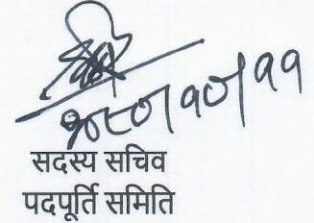 २०८०।१०।११
सदस्य सचिव
पदपूर्ति समिति